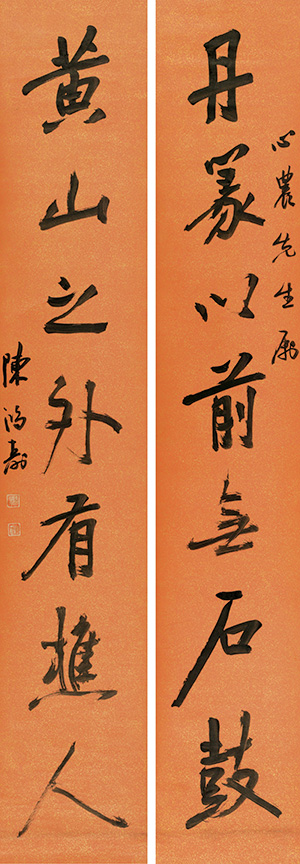 丹篆以前無石鼓
心農先生屬
黃山之外有樵人
陳鴻壽